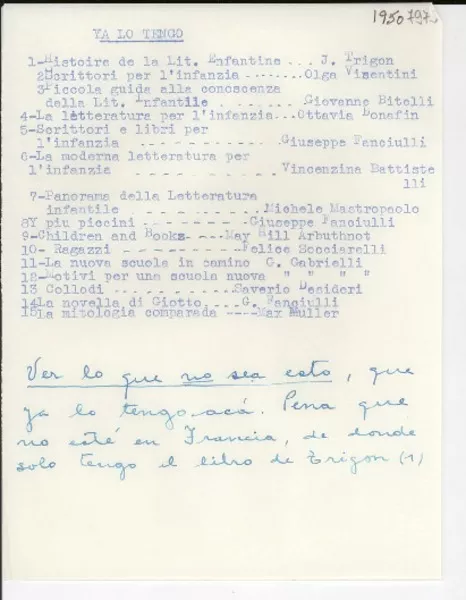 1950797
YA LO TENGO
1-Histoire de la Lit. Enfantine ... J. Trigon
2Scrittori per l'infanzia -------- Olga Visentini
3Piccola guida alla conoscenza
della Lit. Infantile . . . . . . . Giovanno Bitelli
4-La letteratura per l'infanzia...Ottavia Bonafin
5-Scrittori e libri per
l'infanzia - - - - - - - - - - - Giuseppe Fanciulli
6-La moderna letteratura per
l'infanzia - - - - - - - - - - - Vincenzina Battiste
lli
7-Panorama della Letteratura
infantile - - - - - - - - -.Michele Mastropaolo
8Y piu piccini - - - - - - - -Giuseppe Fanciulli
9-Children and Books- ---May Hill Arbuthnot
10- Ragazzi - - - - - - - - - -Felice Socciarelli
11-La nuova scuola in camino G. Gabrielli
12-Motivi per una scuola nuova " " " "
13 Collodi .. - - - - - - - - - -Saverio Desideri
14La novella di Giotto ....G. Fanciulli
15La mitologia comparada ----Max Muller
Ver lo que no sea esto, que
ya lo tengo acá. Pena que
no esté en Francia, de donde
solo tengo el libro de Trigon (1)